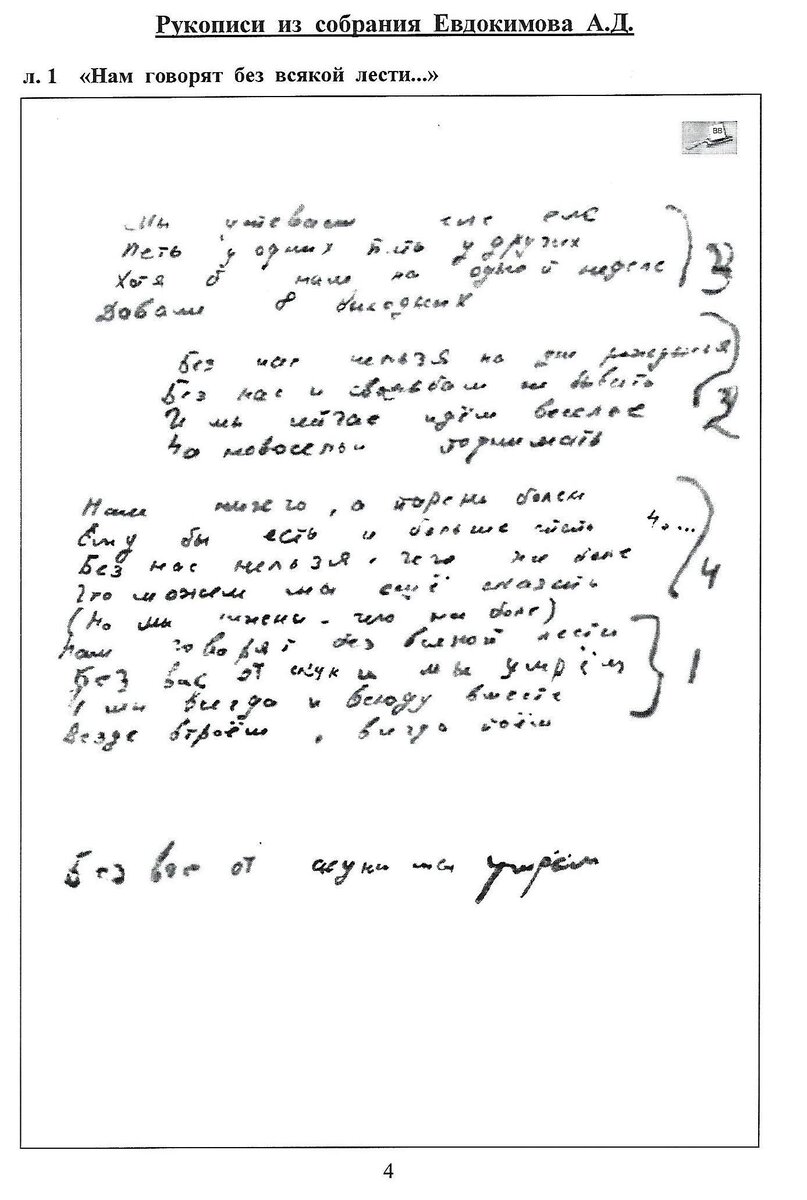 Рукописи из собрания Евдокимова А.Д.
л. 1 «Нам говорят без всякой лести...»
ВВ
Мы успеваем еле еле
Петь у одних пить у других
Хотя б нам на одной неделе
Давали 8 выходных
3
Без нас нельзя на дни рожденья
Без нас и свадьбам не бывать
И мы сейчас идём веселье
На новоселье поднимать
2
Нам ничего, а парень болен
Ему бы есть и больше спать Но...
Без нас нельзя. чего же боле
Что можем мы ещё сказать
4
(Но мы нужны - чего же боле)
Нам говорят без всякой лести
Без вас от скуки мы умрём
И мы всегда и всюду вместе
Везде втроём, всегда поём
1
Без вас от скуки мы умрём
4